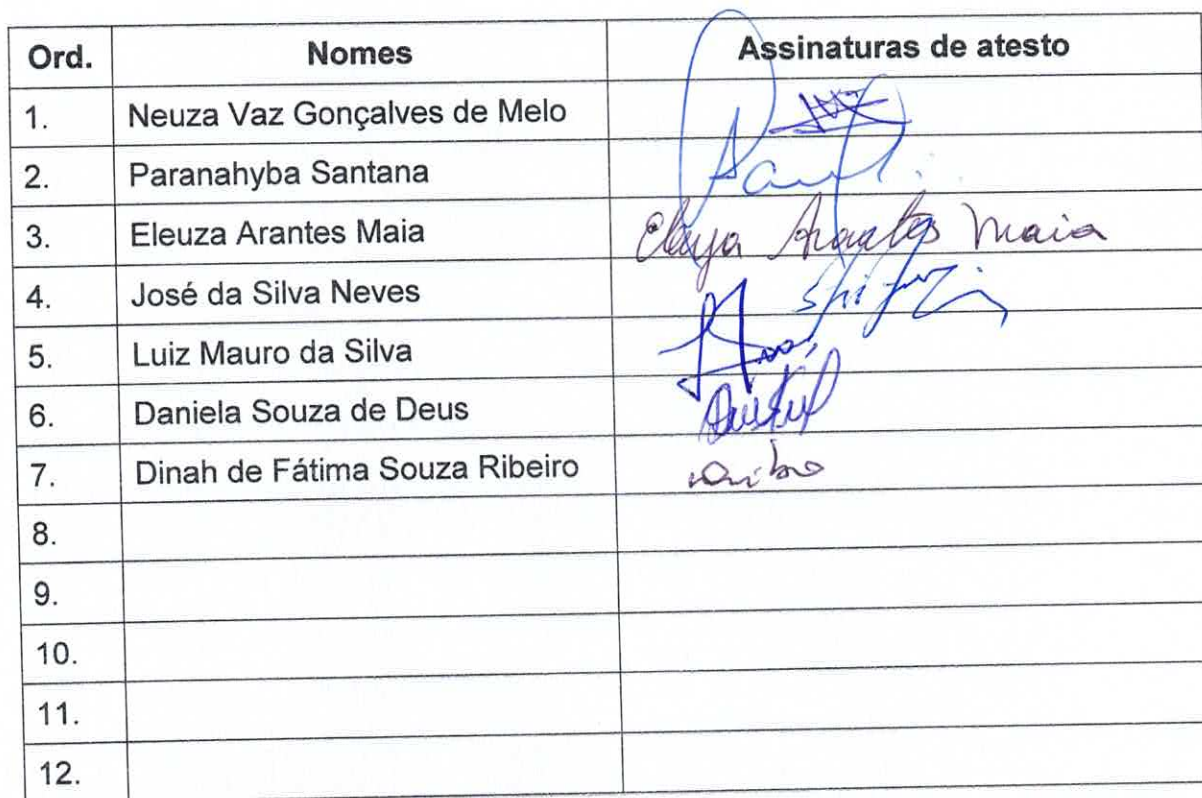 Ord. Nomes Assinaturas de atesto
1. Neuza Vaz Gonçalves de Melo
2. Paranahyba Santana
3. Eleuza Arantes Maia Eleuza Arantes Maia
4. José da Silva Neves
5. Luiz Mauro da Silva
6. Daniela Souza de Deus
7. Dinah de Fátima Souza Ribeiro
8.
9.
10.
11.
12.